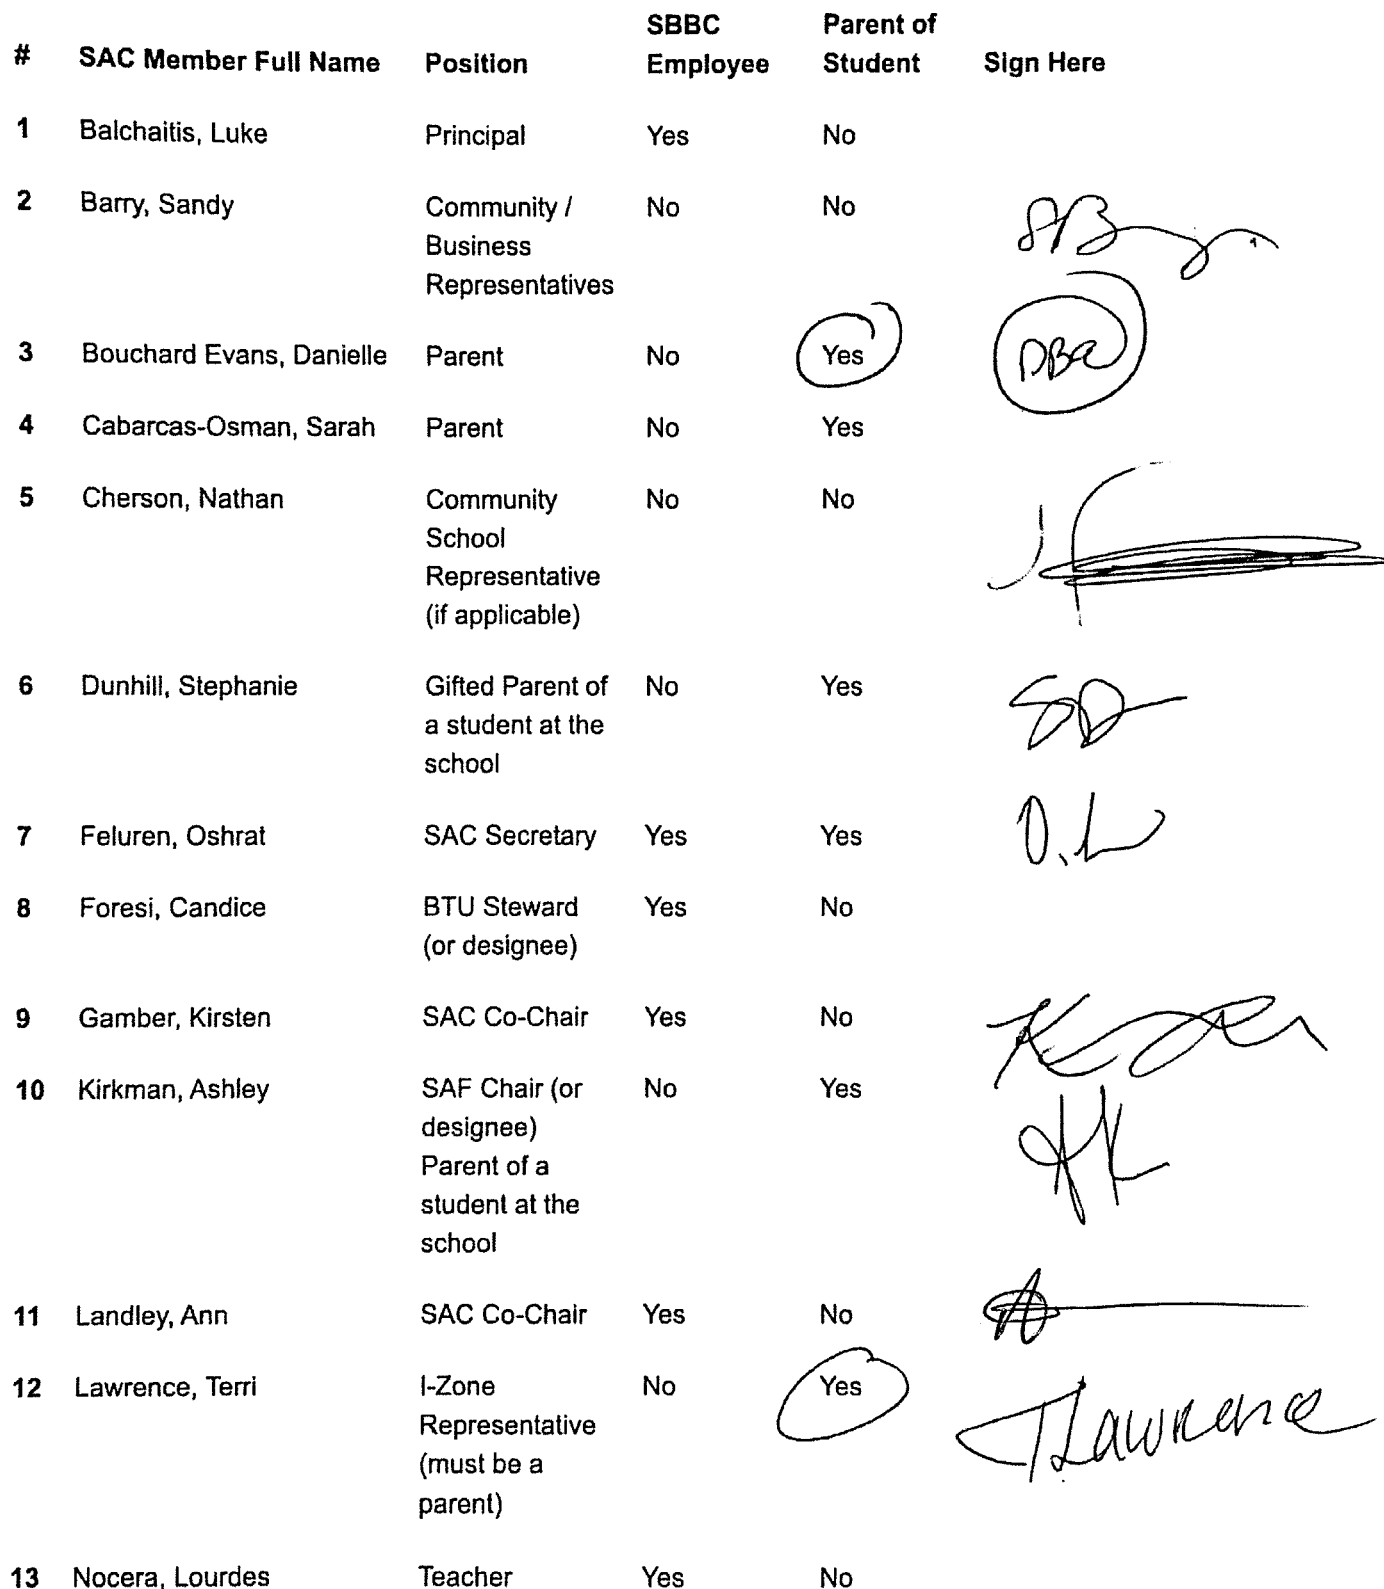 # SAC Member Full Name Position SBBC Employee Parent of Student Sign Here
1 Balchaitis, Luke Principal Yes No
2 Barry, Sandy Community / No No
Business
Representatives
3 Bouchard Evans, Danielle Parent No Yes DBe
4 Cabarcas-Osman, Sarah Parent No Yes
5 Cherson, Nathan Community No No
School
Representative
(if applicable)
6 Dunhill, Stephanie Gifted Parent of No Yes SD
a student at the
school
7 Feluren, Oshrat SAC Secretary Yes Yes
8 Foresi, Candice BTU Steward Yes No
(or designee)
9 Gamber, Kirsten SAC Co-Chair Yes No
10 Kirkman, Ashley SAF Chair (or No Yes AK
designee)
Parent of a
student at the
school
11 Landley, Ann SAC Co-Chair Yes No
12 Lawrence, Terri I-Zone No Yes TLawrence
Representative
(must be a
parent)
13 Nocera, Lourdes Teacher Yes No